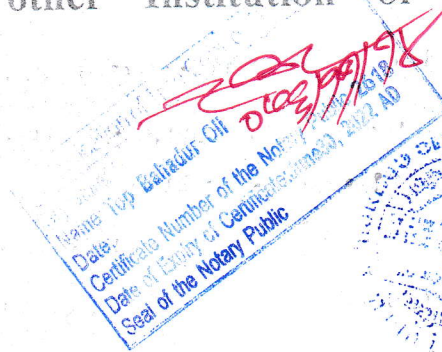 other Institution or
Name: Top Bahadur Oli
Date:
Certificate Number of the Notary Public 2618
Date of Expiry of Certificate: June 30, 2022 AD
Seal of the Notary Public